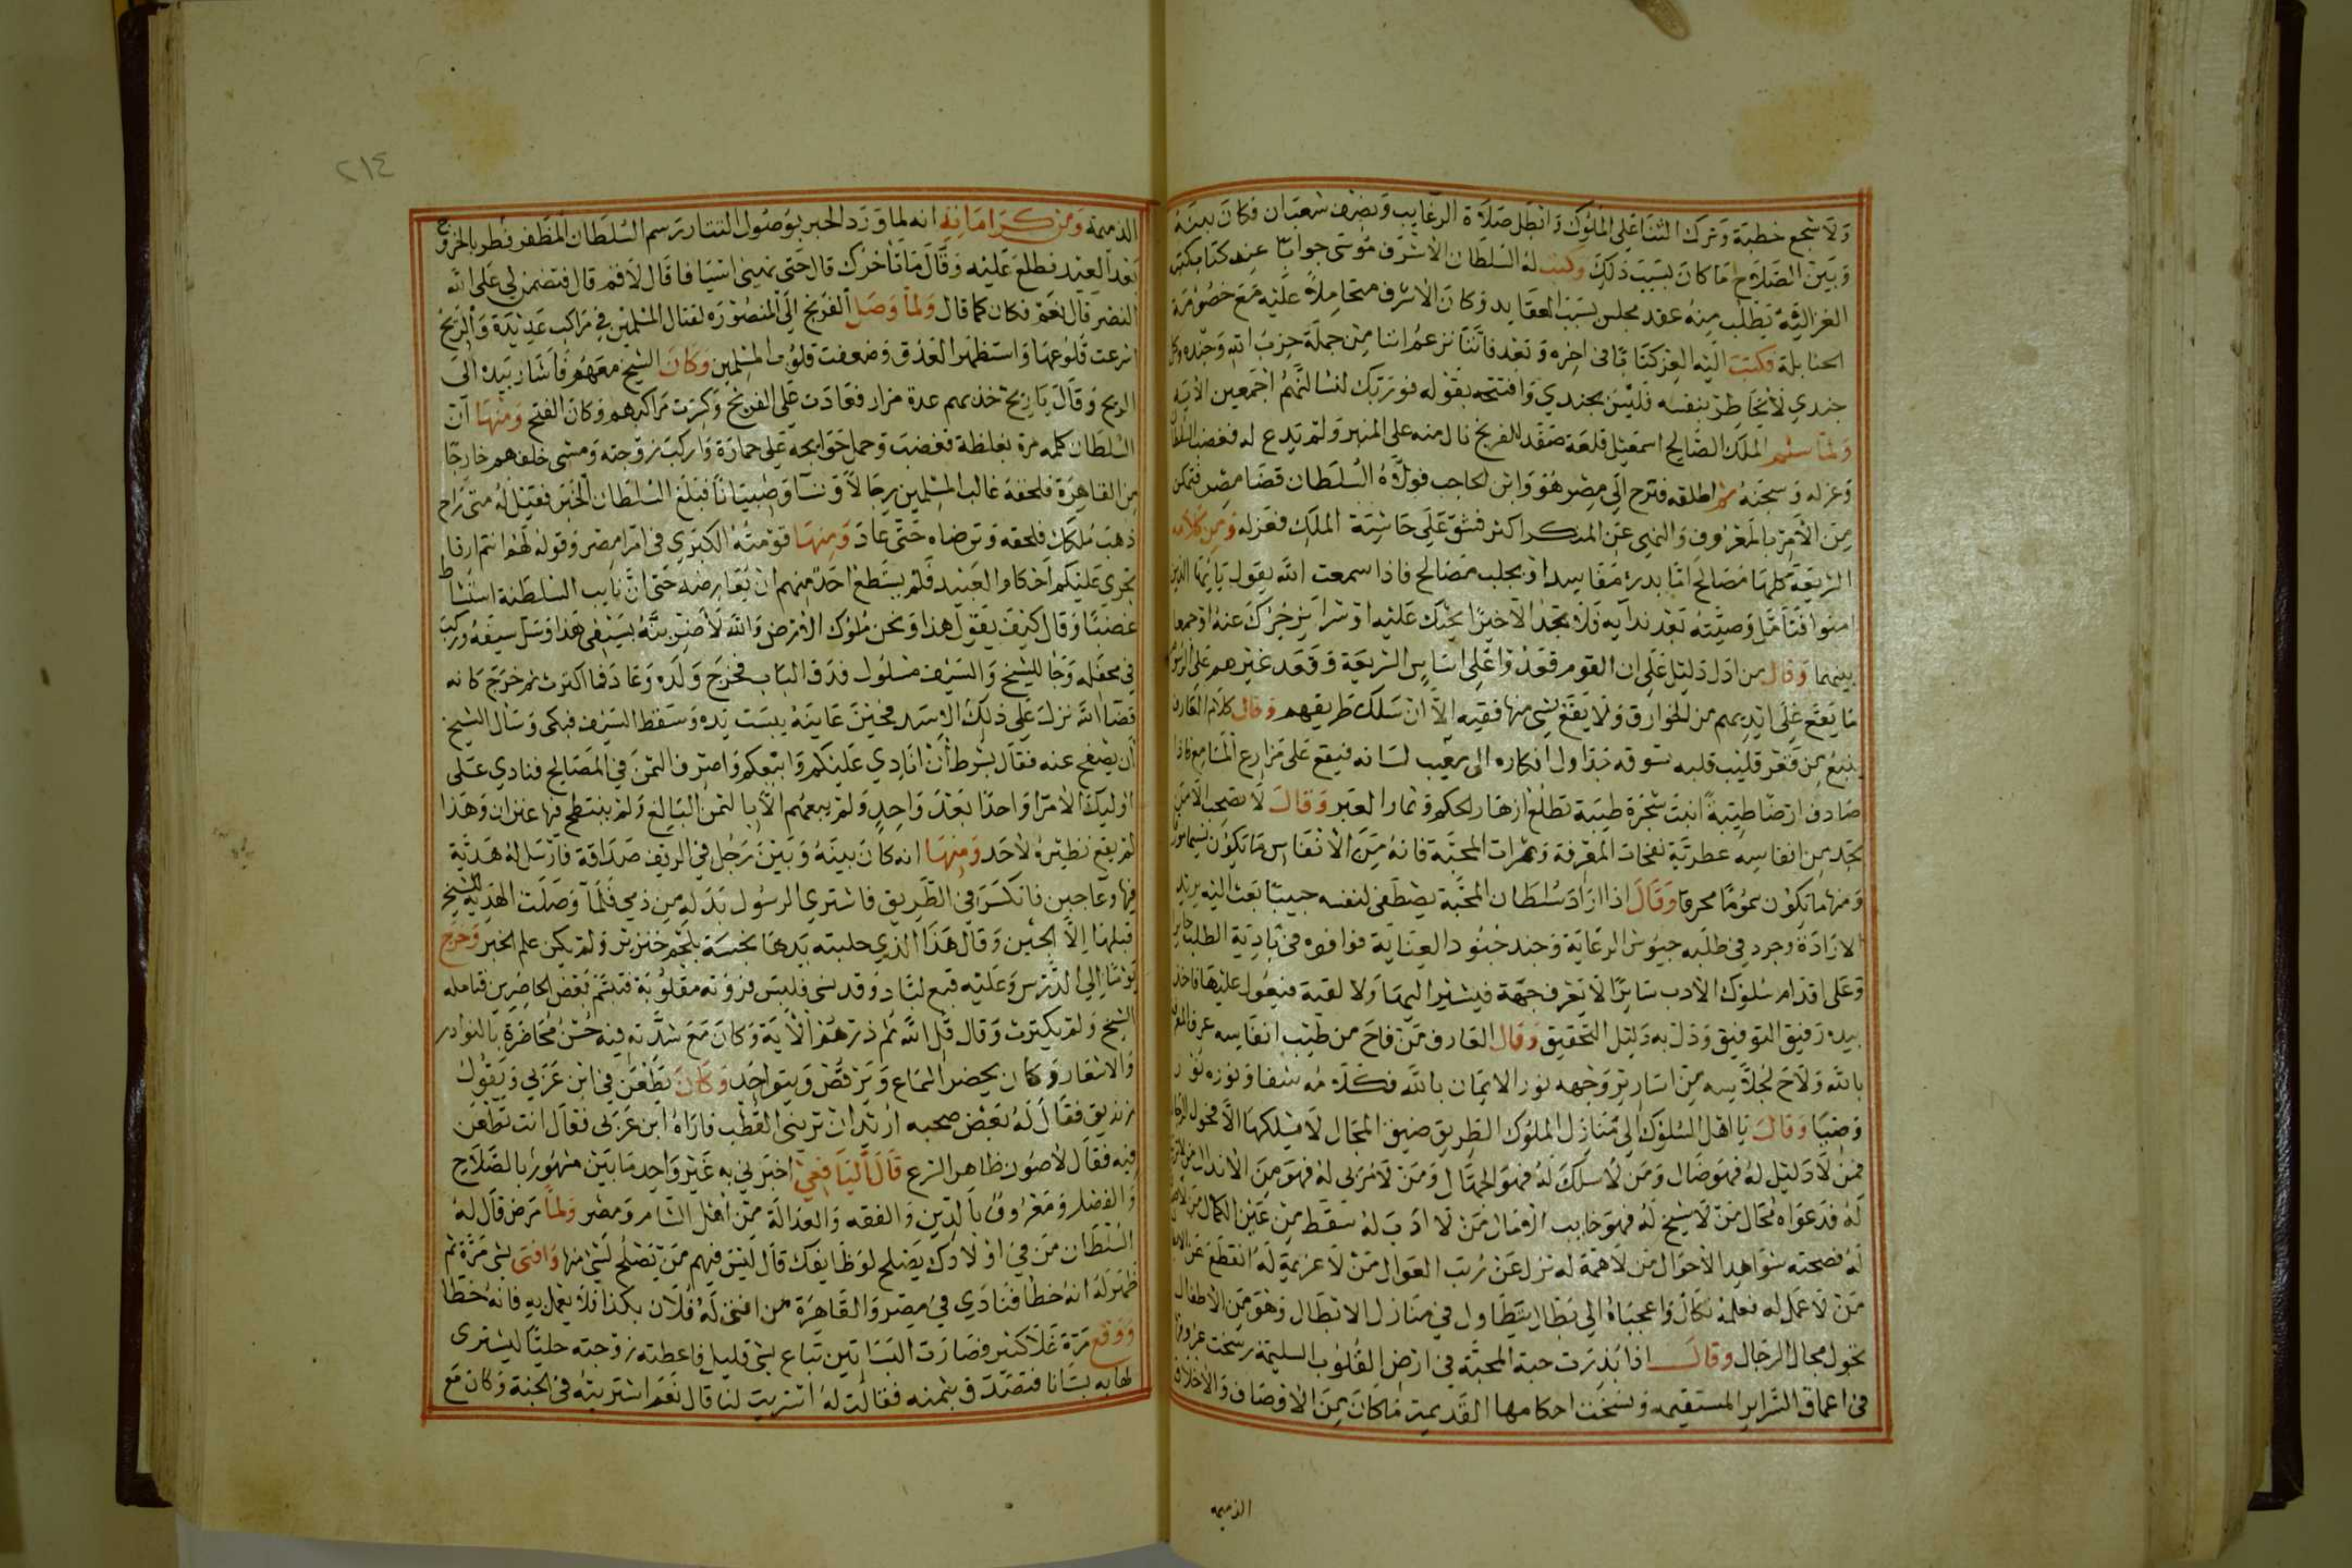 ولا شجع خطبة وترك الثنا على الملوك وابطل صلاة الرغايب ونصف شعبان فكان بينه
وبين الصلاح ما كان بسبب ذلك وكتب له السلطان الاشرف موسى جوابا عن كتاب كتبه
العز اليه يطلب منه عقد مجلس بسبب العقايد وكان الاشرف متحاملا عليه مع خصومة
الحنابلة فكتب اليه العز كتابا في اخره وبعد فاننا نزعم اننا من جملة حزب الله وجنده وكل
جندي لا يخاطر بنفسه فليس بجندي وافتتحه بقوله فوربك لنسالنهم اجمعين الاية
ولما سلم الملك الصالح اسمعيل قلعة صفد للفرنج نال منه على المنبر ولم يدع له فغضب السلطان
وعزله وسجنه ثم اطلقه فنزح الى مصر هو وابن الحاجب فولاه السلطان قضا مصر فتمكن
من الامر بالمعروف والنهي عن المنكر اكثر فشق على حاشية الملك فعزله ومن كلامه
الشريعة كلها مصالح اما بدرء مفاسد او بجلب مصالح فاذا سمعت الله يقول يا ايها الذين
امنوا فتامل وصيته بعد ندايه فلا تجد الا خيرا يحثك عليه او شرا يزجرك عنه او جمعا
بينهما وقال من ادل دليل على ان القوم قعدوا على اساس الشريعة وقعد غيرهم على الرسوم
ما يقع على ايديهم من الخوارق ولا يقع شي منها فقيه الا ان سلك طريقهم وقال كلام العارف
ينبع من قعر قليب قلبه تسوقه جداول افكاره الى مغيب لسانه فيقع على مزارع المسامع فاذا
صادف ارضا طيبة انبت شجرة طيبة تطلع ازهار الحكم وثمار العبر وقال لا تصحب الا من
تجد من انفاسه عطرية نفحات المعرفة وثمرات المحبة فانه من الانفاس ما تكون نسيما
ومنها ما تكون سموما محرقا وقال اذا اراد سلطان المحبة يصطفى لنفسه حبيبا بعث اليه بريد
الارادة وجرد في طلبه جيوش الرعاية وجند جنود العناية فوافوه في بادية الطلب
وعلى اقدام سلوك الادب سايرا لا يعرف جهة فيشير اليها ولا لقبة فيعول عليها فاخذ
بيده رفيق التوفيق ودل به دليل التحقيق وقال العارف من فاح من طيب انفاسه عرف
بالله ولاح لجلاسه من اسارير وجهه نور الايمان بالله فكلامه شفا ونوره نور
وضيا وقال يا اهل السلوك الى منازل الملوك الطريق ضيق المجال لا يسلكها الا فحول الرجال
فمن لا دليل له فهو ضال ومن لا سلك له فهو الجمال ومن لا مربى له فهو من الانذال
له فدعواه محال من لا شيخ له فهو خايب الامال من لا ادب له سقط من عين الكمال
له فضحته شواهد الاحوال من لا همة له نزل عن رتب العوال من لا عزيمة له انقطع عن
من لا عمل له فعلمه نكال واعجباه الى بطال يتطاول في منازل الابطال وهو من الاطفال
يجول مجال الرجال وقال اذا بذرت حبة المحبة في ارض القلوب السليمة رسخت عروقها
في اعماق السراير المستقيمه ونسخت احكامها القديمة ما كان من الاوصاف والاخلاق
الذميمه
٢١٤
الذميمة ومن كراماته انه لما ورد الخبر بوصول التتار رسم السلطان المظفر قطز بالخروج
بعد العيد فطلع عليه وقال ما تاخرك قال حتى نهيئ اشيا فا قال لا قم قال فتضمن لي على الله
النصر قال نعم فكان كما قال ولما وصل الفرنج الى المنصورة لقتال المسلمين في مراكب عديدة والريح
اسرعت قلوعها واستظهر العدو وضعفت قلوب المسلمين وكان الشيخ معهم فاشار بيده الى
الريح وقال يا ريح خذيهم عدة مرار فعادت على الفرنج وكسرت مراكبهم وكان الفتح ومنها ان
السلطان كلمه مرة بغلظة فغضب وحمل حوايجه على حمارة واركب زوجته ومشى خلفهم خارجا
من القاهرة فلحقه غالب المسلمين رجالا ونسا وصبيانا فبلغ السلطان الخبر فقيل له متى راح
ذهب ملكك فلحقه وترضاه حتى عاد ومنها قومته الكبرى في امرا مصر وقوله لهم انتم ارقا
تجرى عليكم احكام العبيد فلم يستطع احد منهم ان يعارضه حتى ان نايب السلطنة استشاط
غضبا وقال كيف يقول هذا ونحن ملوك الارض والله لاضربنه بسيفى هذا وسل سيفه وركب
في محفله وجا للشيخ والسيف مسلول فدق الباب فخرج ولده وعاد فما اكترث ثم خرج كانه
قضا الله نزل على ذلك الاسد فحين عاينه يبست يده وسقط السيف فبكى وسال الشيخ
ان يصفح عنه فقال بشرط ان انادى عليكم وابيعكم واصرف الثمن في المصالح فنادي على
اوليك الامرا واحدا بعد واحد ولم يبعهم الا بالثمن البالغ ولم ينتطح فيها عنزان وهذا
لم يقع نظيره لاحد ومنها انه كان بينه وبين رجل في الريف صداقة فارسل له هدية
فيها وعا جبن فانكسر في الطريق فاشترى الرسول بدله من ذمي فلما وصلت الهدية للشيخ
قبلها الا الجبن وقال هذا الذي حلبته يدها نجسة بلحم خنزير ولم يكن علم الخبر وخرج
يوما الى الدرس وعليه قبع لباد وقد نسى فلبس فروته مقلوبة فتبسم بعض الحاضرين فتامله
الشيخ ولم يكترث وقال قل الله ثم ذرهم الاية وكان مع شدته فيه حسن محاضرة بالنوادر
والاشعار وكان يحضر السماع ويرقص ويتواجد وكان يطعن في ابن عربي ويقول
زنديق فقال له بعض صحبه اريد ان تريني القطب فاراه ابن عربى فقال انت تطعن
فيه فقال لاصون ظاهر الشرع قال اليافعي اخبرني به غير واحد ما بين مشهور بالصلاح
والفضل ومعروف بالدين والفقه والعدالة من اهل الشام ومصر ولما مرض قال له
السلطان من في اولادك يصلح لوظايفك قال ليس فيهم من يصلح لشي منها وافتى بشي مرة ثم
ظهر له انه خطا فنادى في مصر والقاهرة من افتى له فلان بكذا فلا يعمل به فانه خطا
ووقع مرة غلا كثير فصارت البساتين تباع بشي قليل فاعطته زوجته حليا ليشترى
لها به بستانا فتصدق بثمنه فقالت له اشتريت لنا قال نعم اشتريته في الجنة وكان مع